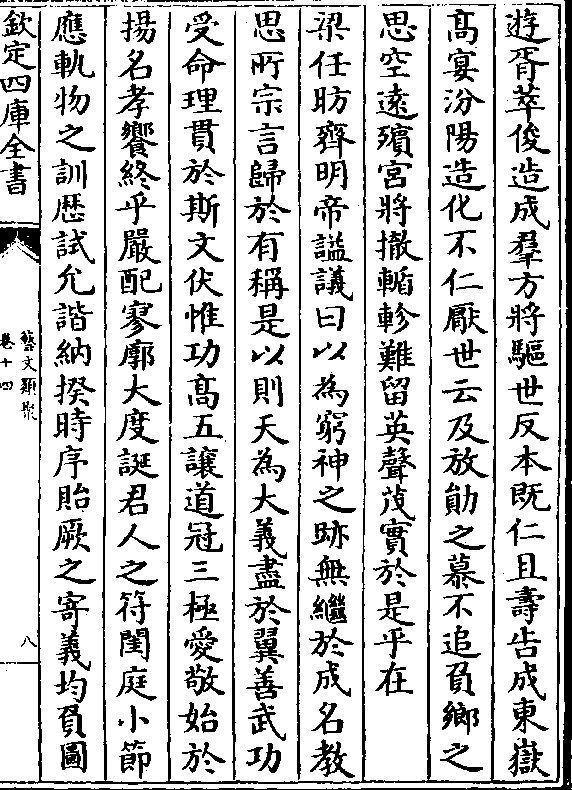 遊胥萃俊造成羣方將驅世反本既仁且壽告成東嶽
髙宴汾陽造化不仁厭世云及放勛之慕不追負鄉之
思空遠殯宮將撤輴軫難留英聲茂實於是乎在
梁任昉齊明帝諡議曰以為窮神之跡無繼於成名教
思所宗言歸於有稱是以則天為大義盡於翼善武功
受命理貫於斯文伏惟功髙五讓道冠三極愛敬始於
揚名孝饗終乎嚴配寥廓大度誕君人之符閨庭小節
應軌物之訓歷試允諧納揆時序貽厥之寄義均負圖
欽定四庫全書
藝文類聚
卷十四
八